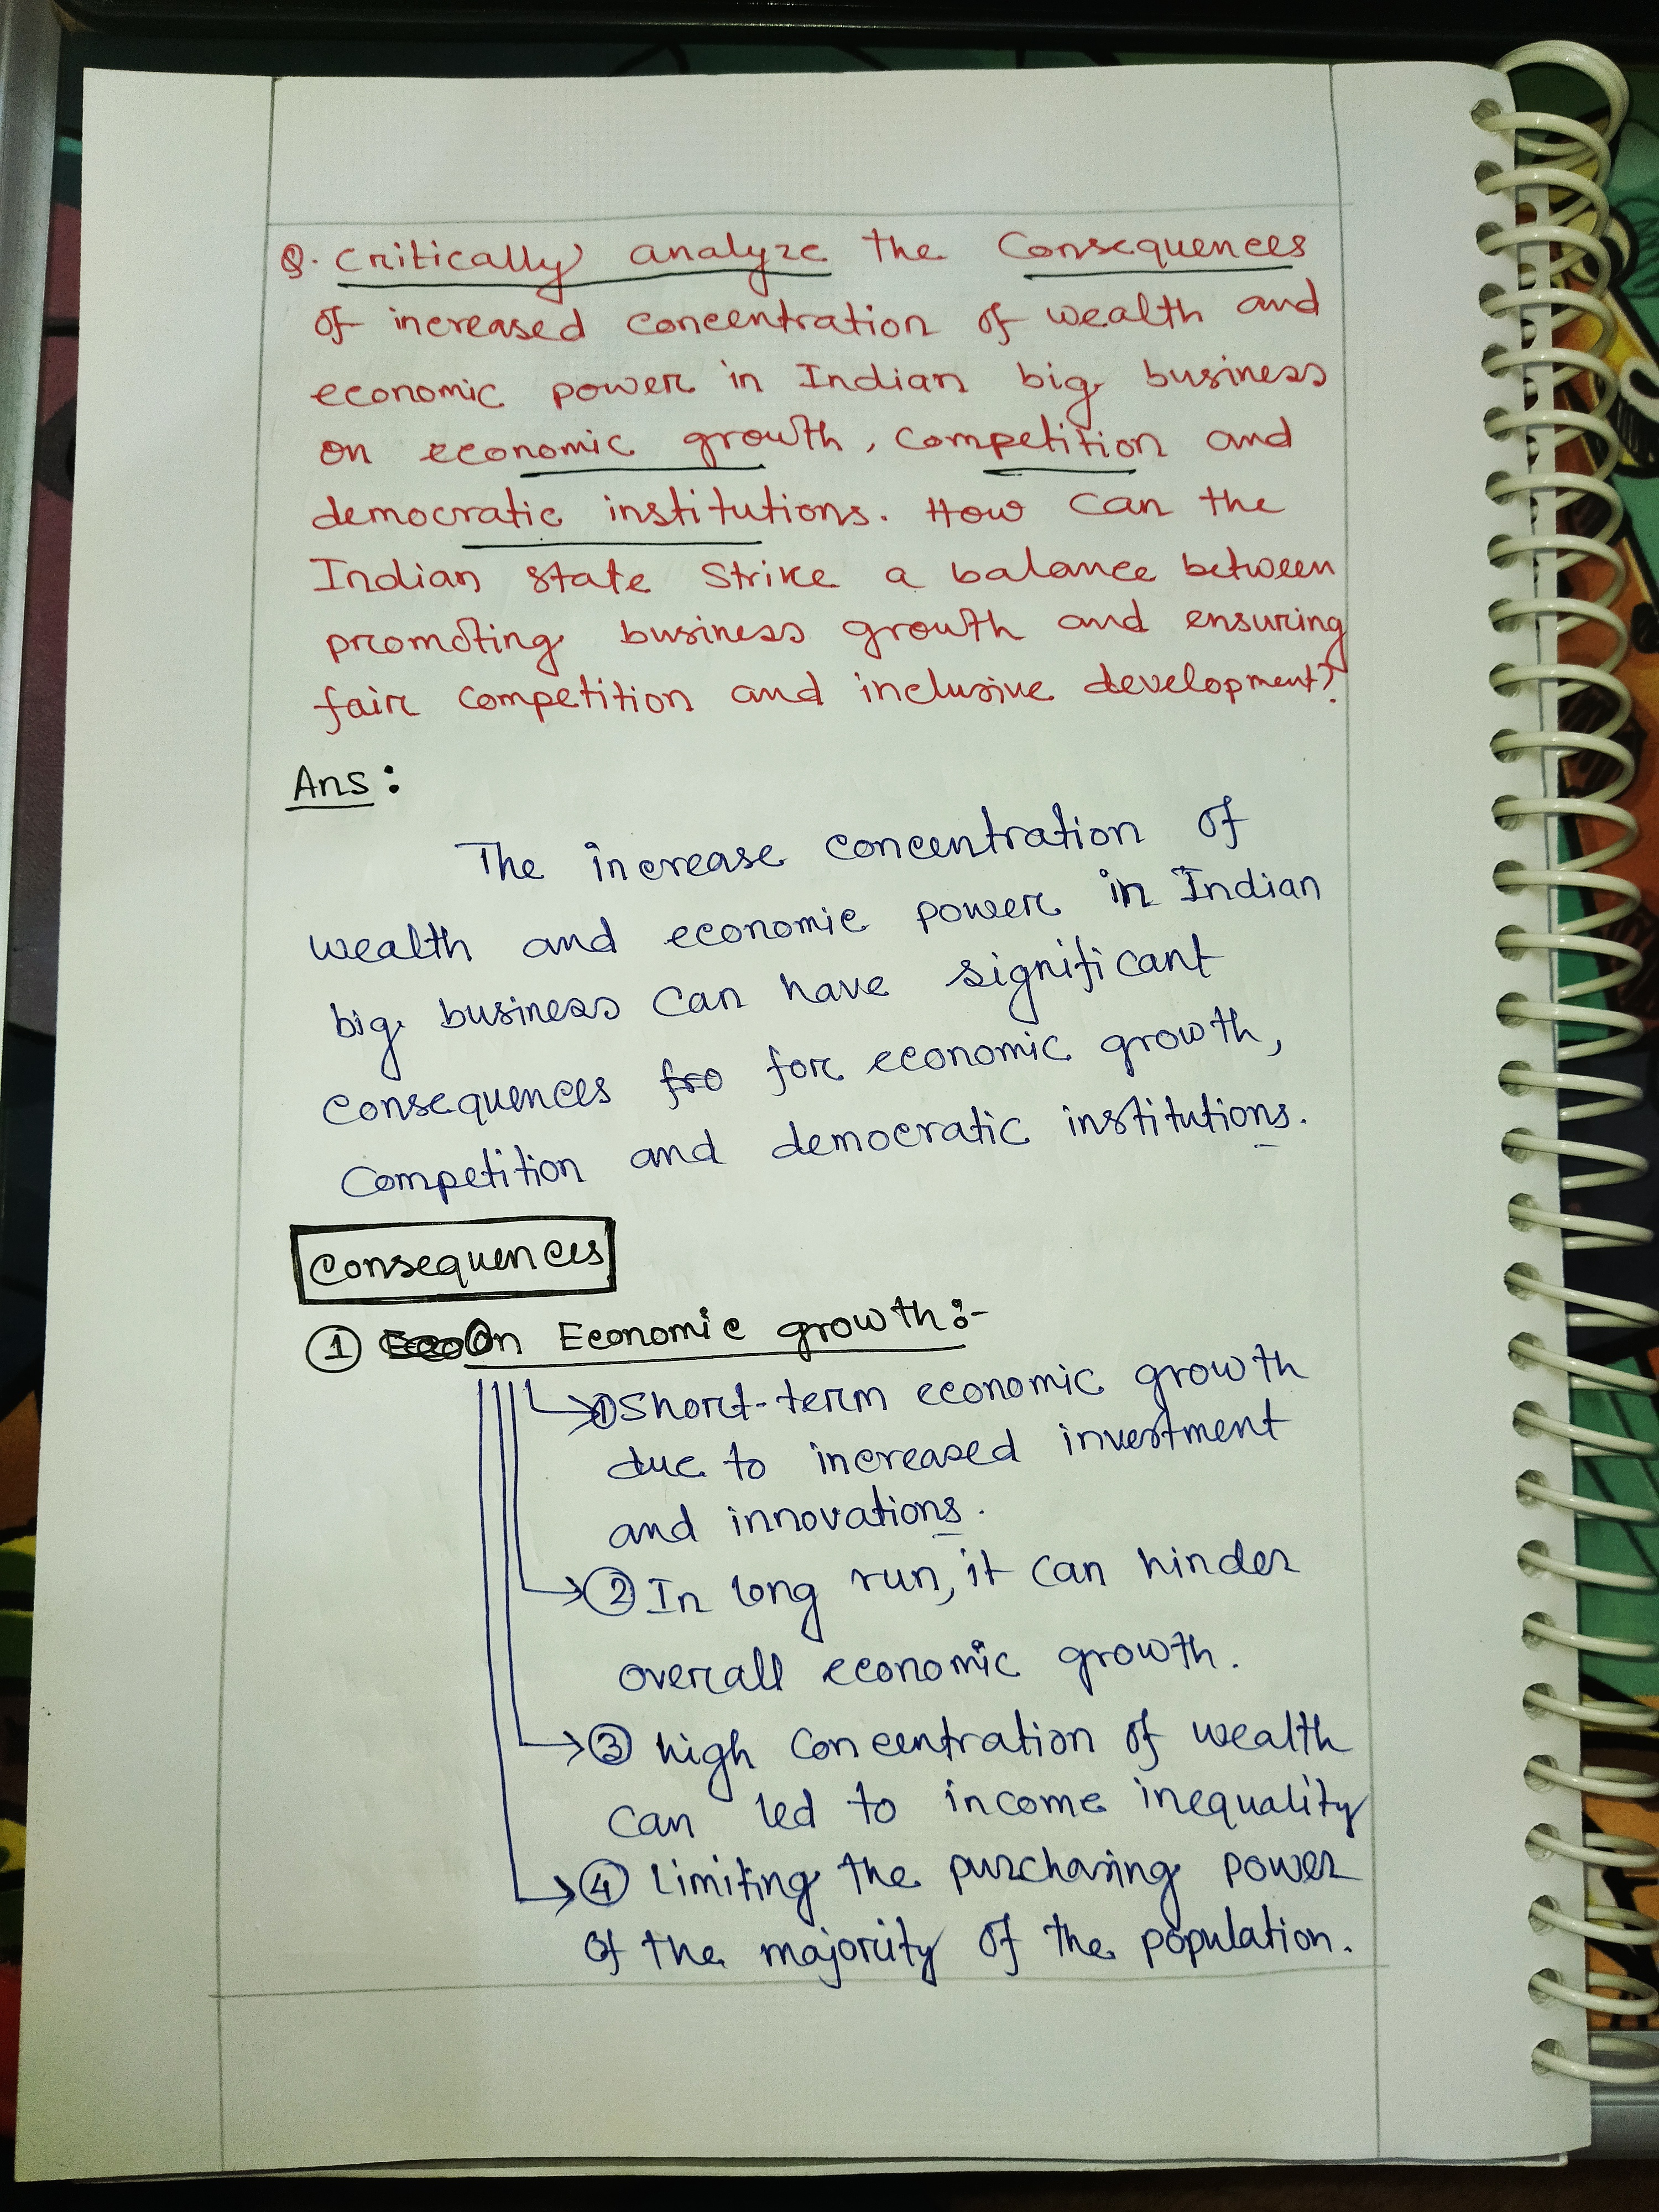 Q. Critically analyze the Consequences
of increased concentration of wealth and
economic power in Indian big business
on economic growth, Competition and
democratic institutions. How Can the
Indian State Strike a balance between
promoting business growth and ensuring
fair Competition and inclusive development?
Ans :
The increase concentration of
wealth and economic power in Indian
big business Can have significant
Consequences fro for economic growth,
Competition and democratic institutions.
Consequences
① On Economic growth:-
① Short-term economic growth
due to increased investment
and innovations.
② In long run, it Can hinder
overall economic growth.
③ high Concentration of wealth
Can led to income inequality
④ Limiting the purchasing power
of the majority of the population.